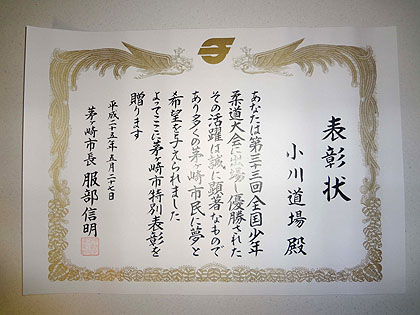 表彰状
小川道場 殿
あなたは第三十三回全国少年
柔道大会に出場し優勝された
その活躍は誠に顕著なもので
あり多くの茅ヶ崎市民に夢と
希望を与えられました
よってここに茅ヶ崎市特別表彰を
贈ります
平成二十五年五月二十七日
茅ヶ崎市長 服部信明